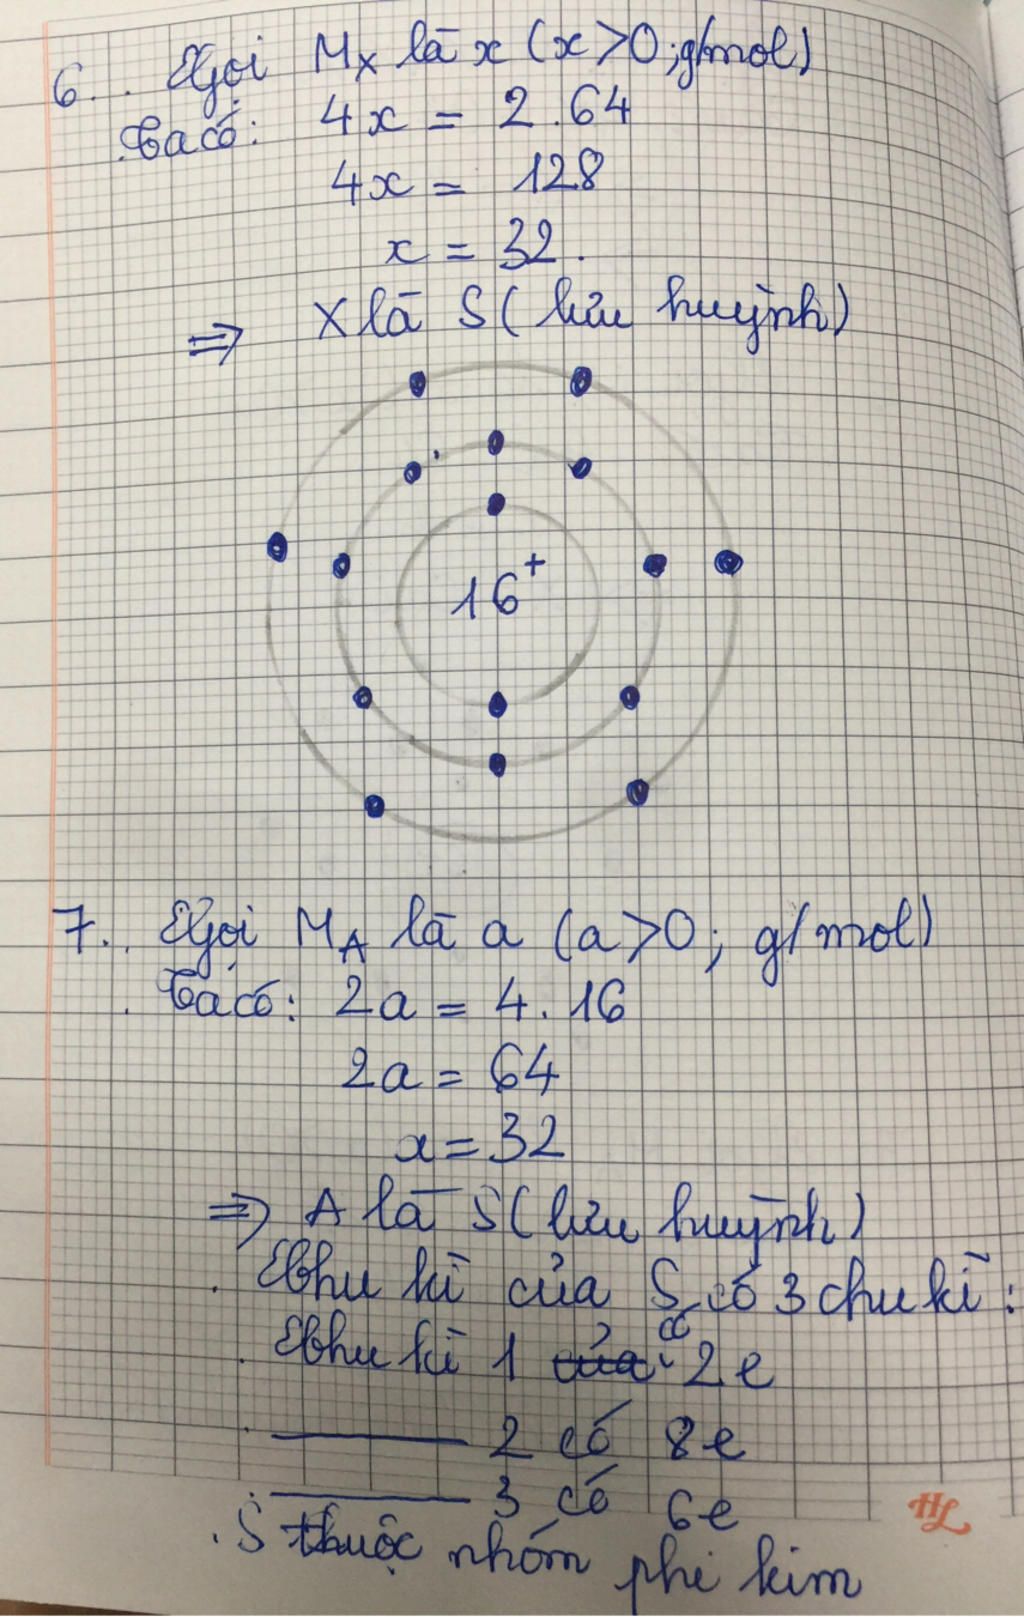 6. . Gọi Mx là x (x>0; g/mol)
Ta có: 4x = 2.64
4x = 128
x = 32.
⇒ X là S (lưu huỳnh)
16+
7. . Gọi MA là a (a>0; g/mol)
. Ta có: 2a = 4. 16
2a = 64
x = 32
⇒ A là S (lưu huỳnh)
. Chu kì của S có 3 chu kì:
. Chu kì 1 của có 2e
. ——— 2 có 8e
. ——— 3 có 6e
HL
. S thuộc nhóm phi kim